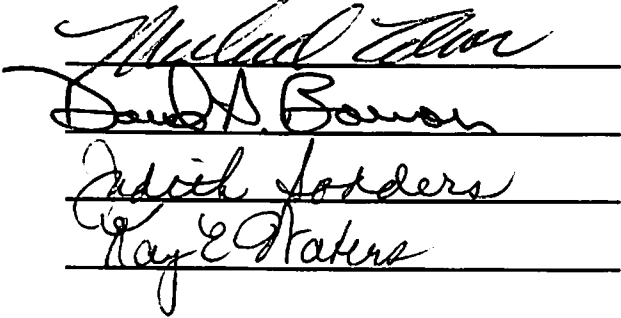 Michael
David A. Bowman
Judith Sodders
Kay E Waters